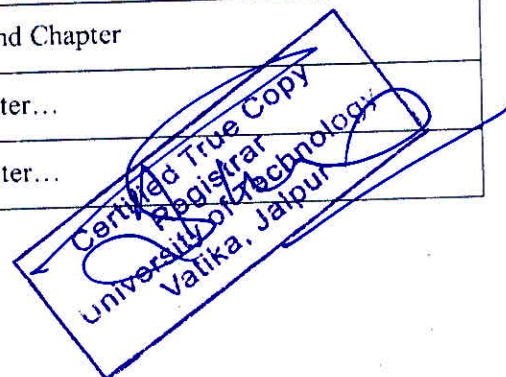 nd Chapter
ter...
ter...
Certified True Copy
Registrar
University of Technology
Vatika, Jaipur